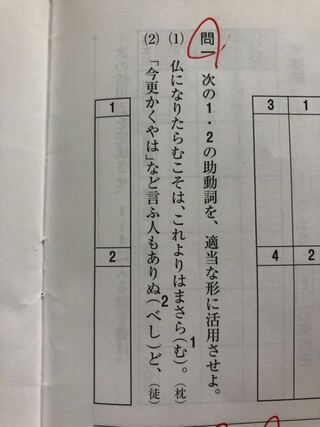 3 1
4 2
問一 次の1・2の助動詞を、適当な形に活用させよ。
(1) 仏になりたらむこそは、これよりはまさら(む)1。(枕)
(2) 「今更かくやは」など言ふ人もありぬ(べし)2ど、(徒)
1
2